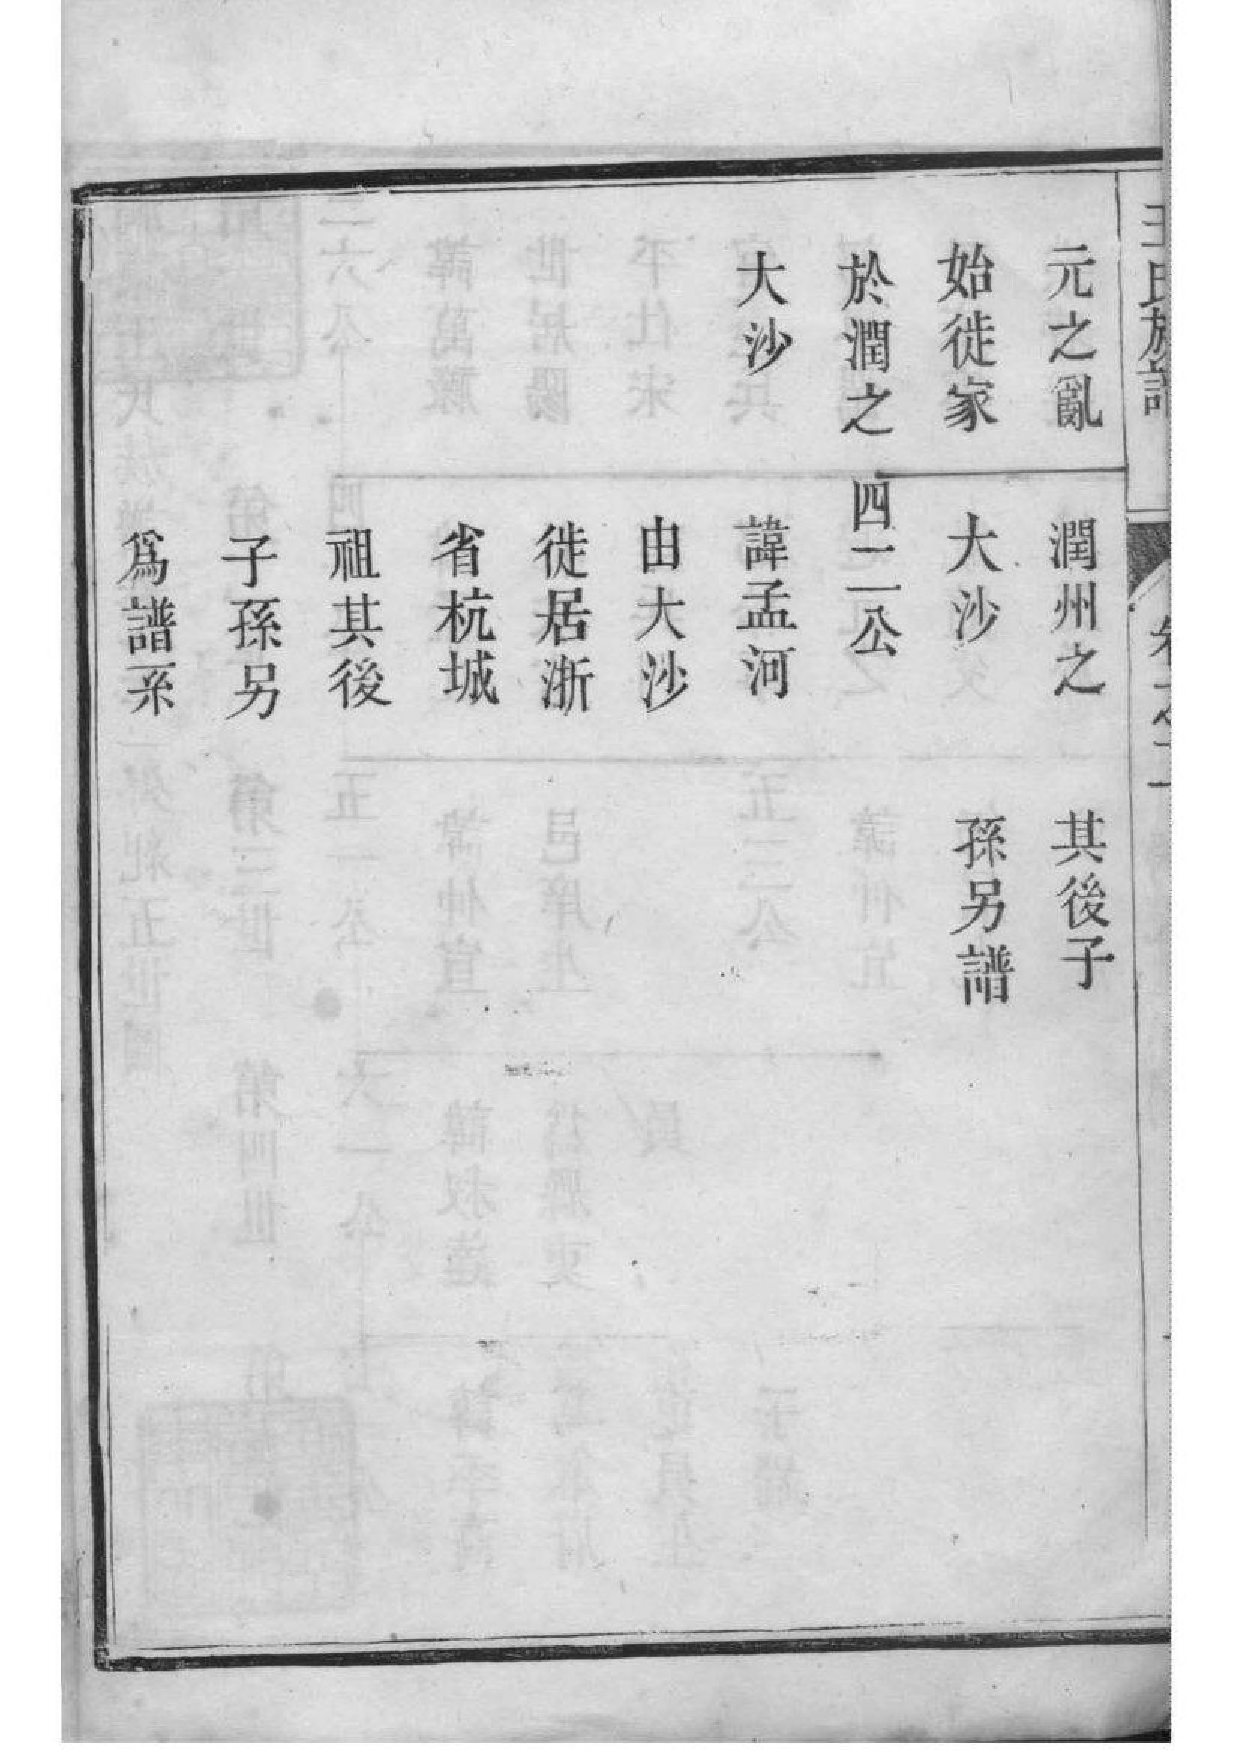 王氏族譜
卷之二
元之亂
始徙家
於潤之
大沙
潤州之
大沙
四二公
諱孟河
由大沙
徙居浙
省杭城
祖其後
子孫另
爲譜系
其後子
孫另譜